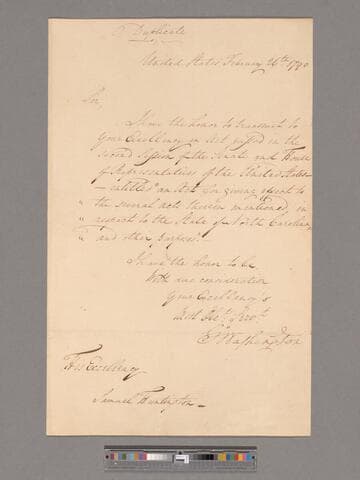 Duplicate
United States February 26th 1790
Sir,
I have the honor to transmit to
Your Excellency an Act passed in the
second Session of the Senate and House
of Representatives of the United States
— entitled "an Act for giving effect to
" the several acts therein mentioned, in
" respect to the State of North Carolina,
" and other purposes.
I have the honor to be
With due consideration
Your Excellency's
Most Obt. Servt.
Go. Washington
His Excellency
Samuel Huntington —